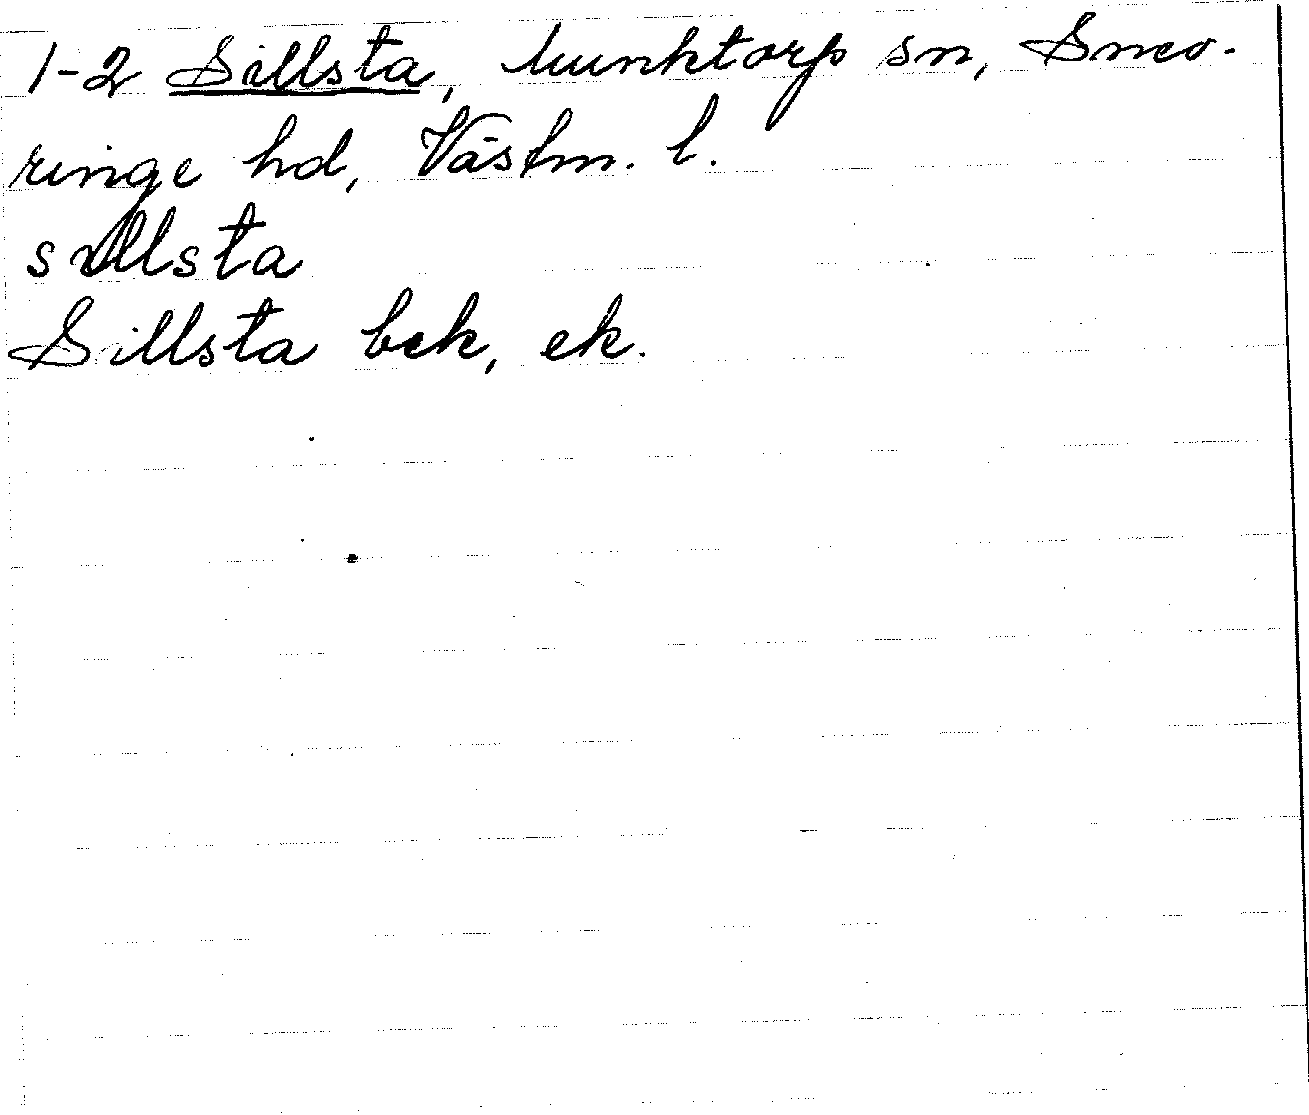 1-2 Sillsta, Munktorp sn, Snev-
ringe hd, Västm. l.
sillsta
Sillsta bek, ek.